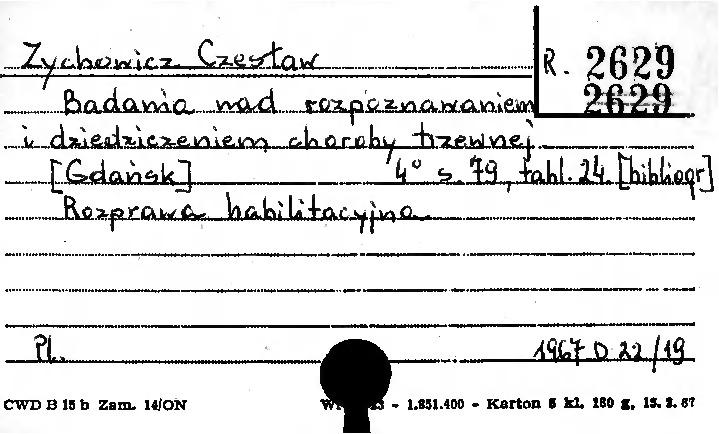 Zychowicz Czesław
R. 2629
2629
Badania nad rozpoznawaniem
i dziedziczeniem choroby trzewnej
[Gdańsk] 4° s. 79, tabl. 24. [bibliogr]
Rozprawa habilitacyjna
Pl. 1967 D 22/19
CWD B 15 b Zam. 14/ON - 1.851.400 - Karton 5 kl. 180 g.